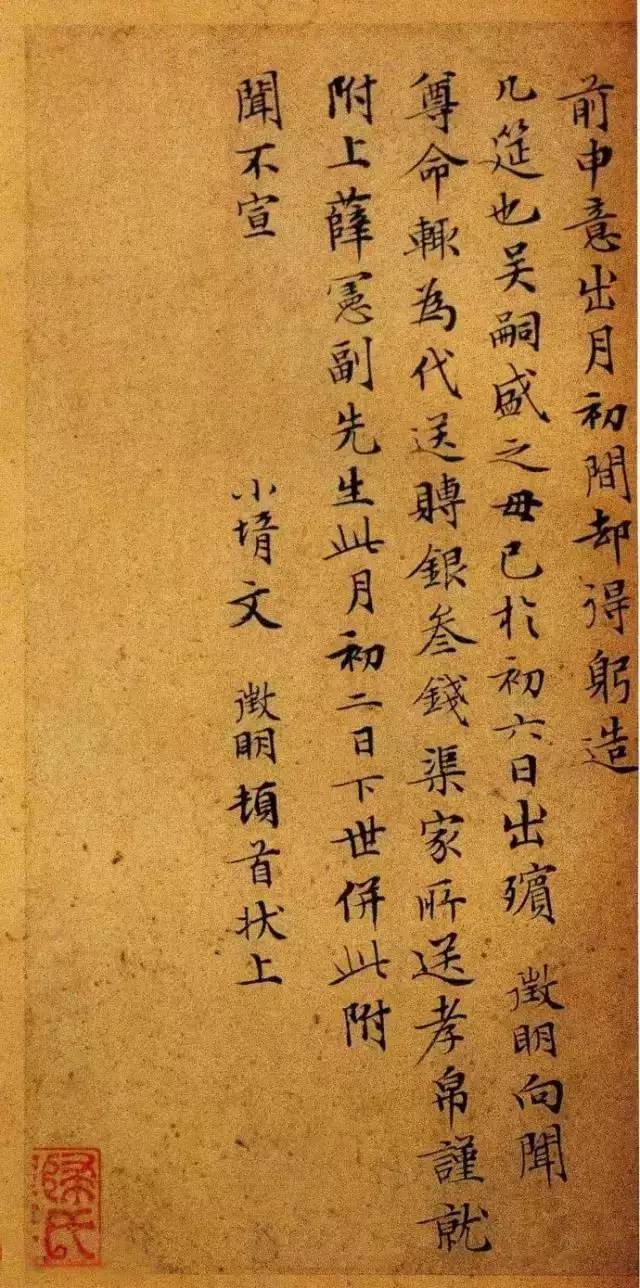 前申意出月初間却得躬造
几筵也吴嗣盛之母已於初六日出殯 徵明向聞
尊命輙為代送賻銀叄錢渠家所送孝帛謹就
附上薛憲副先生此月初二日下世併此附
聞不宣 小壻文 徵明頓首状上